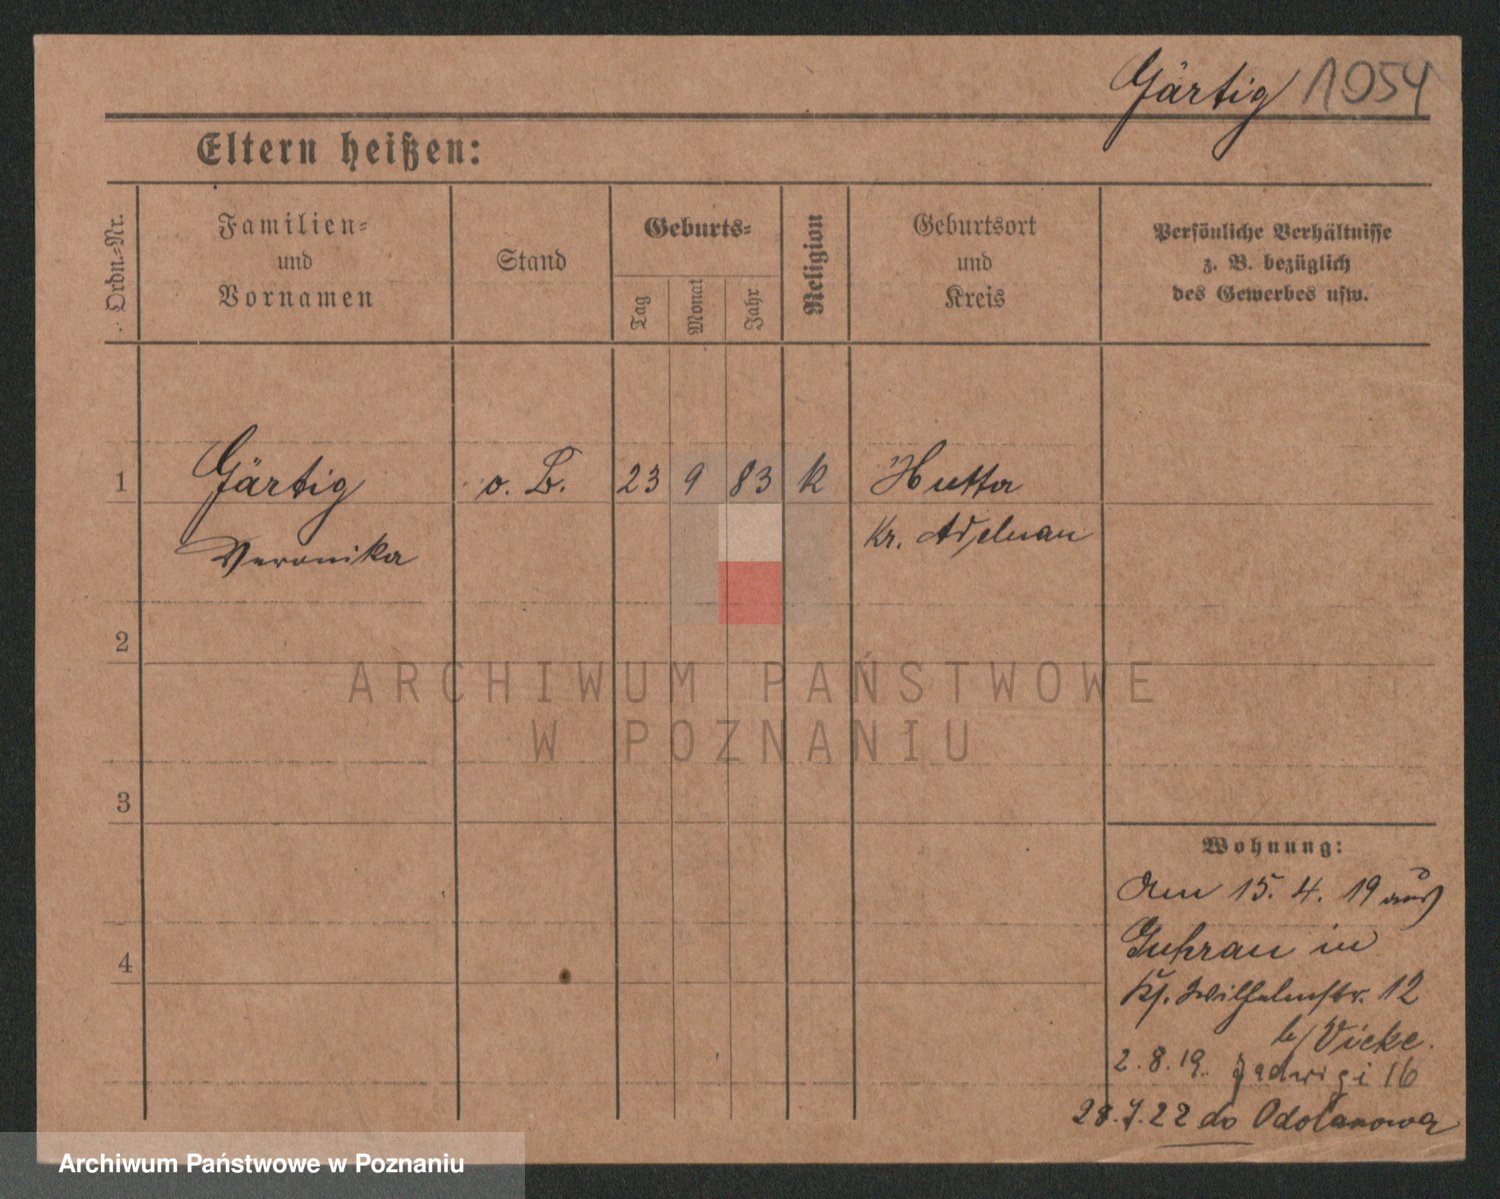 Gärtig 1054
Eltern heißen:
Ordn.-Nr.
Familien-
und
Vornamen
Stand
Geburts-
Tag
Monat
Jahr
Religion
Geburtsort
und
Kreis
Persönliche Verhältnisse
z. B. bezüglich
des Gewerbes usw.
1 Gärtig o. B. 23 9 83 k Hutta
Veronika Kr. Adelnau
2
3
4
ARCHIWUM PAŃSTWOWE
W POZNANIU
Wohnung:
Am 15. 4. 19 aus
Guhrau in
Wilhelmstr. 12
b/ Vicke.
2.8.19. Jadwigi 16
28.7.22 do Odolanowa
Archiwum Państwowe w Poznaniu